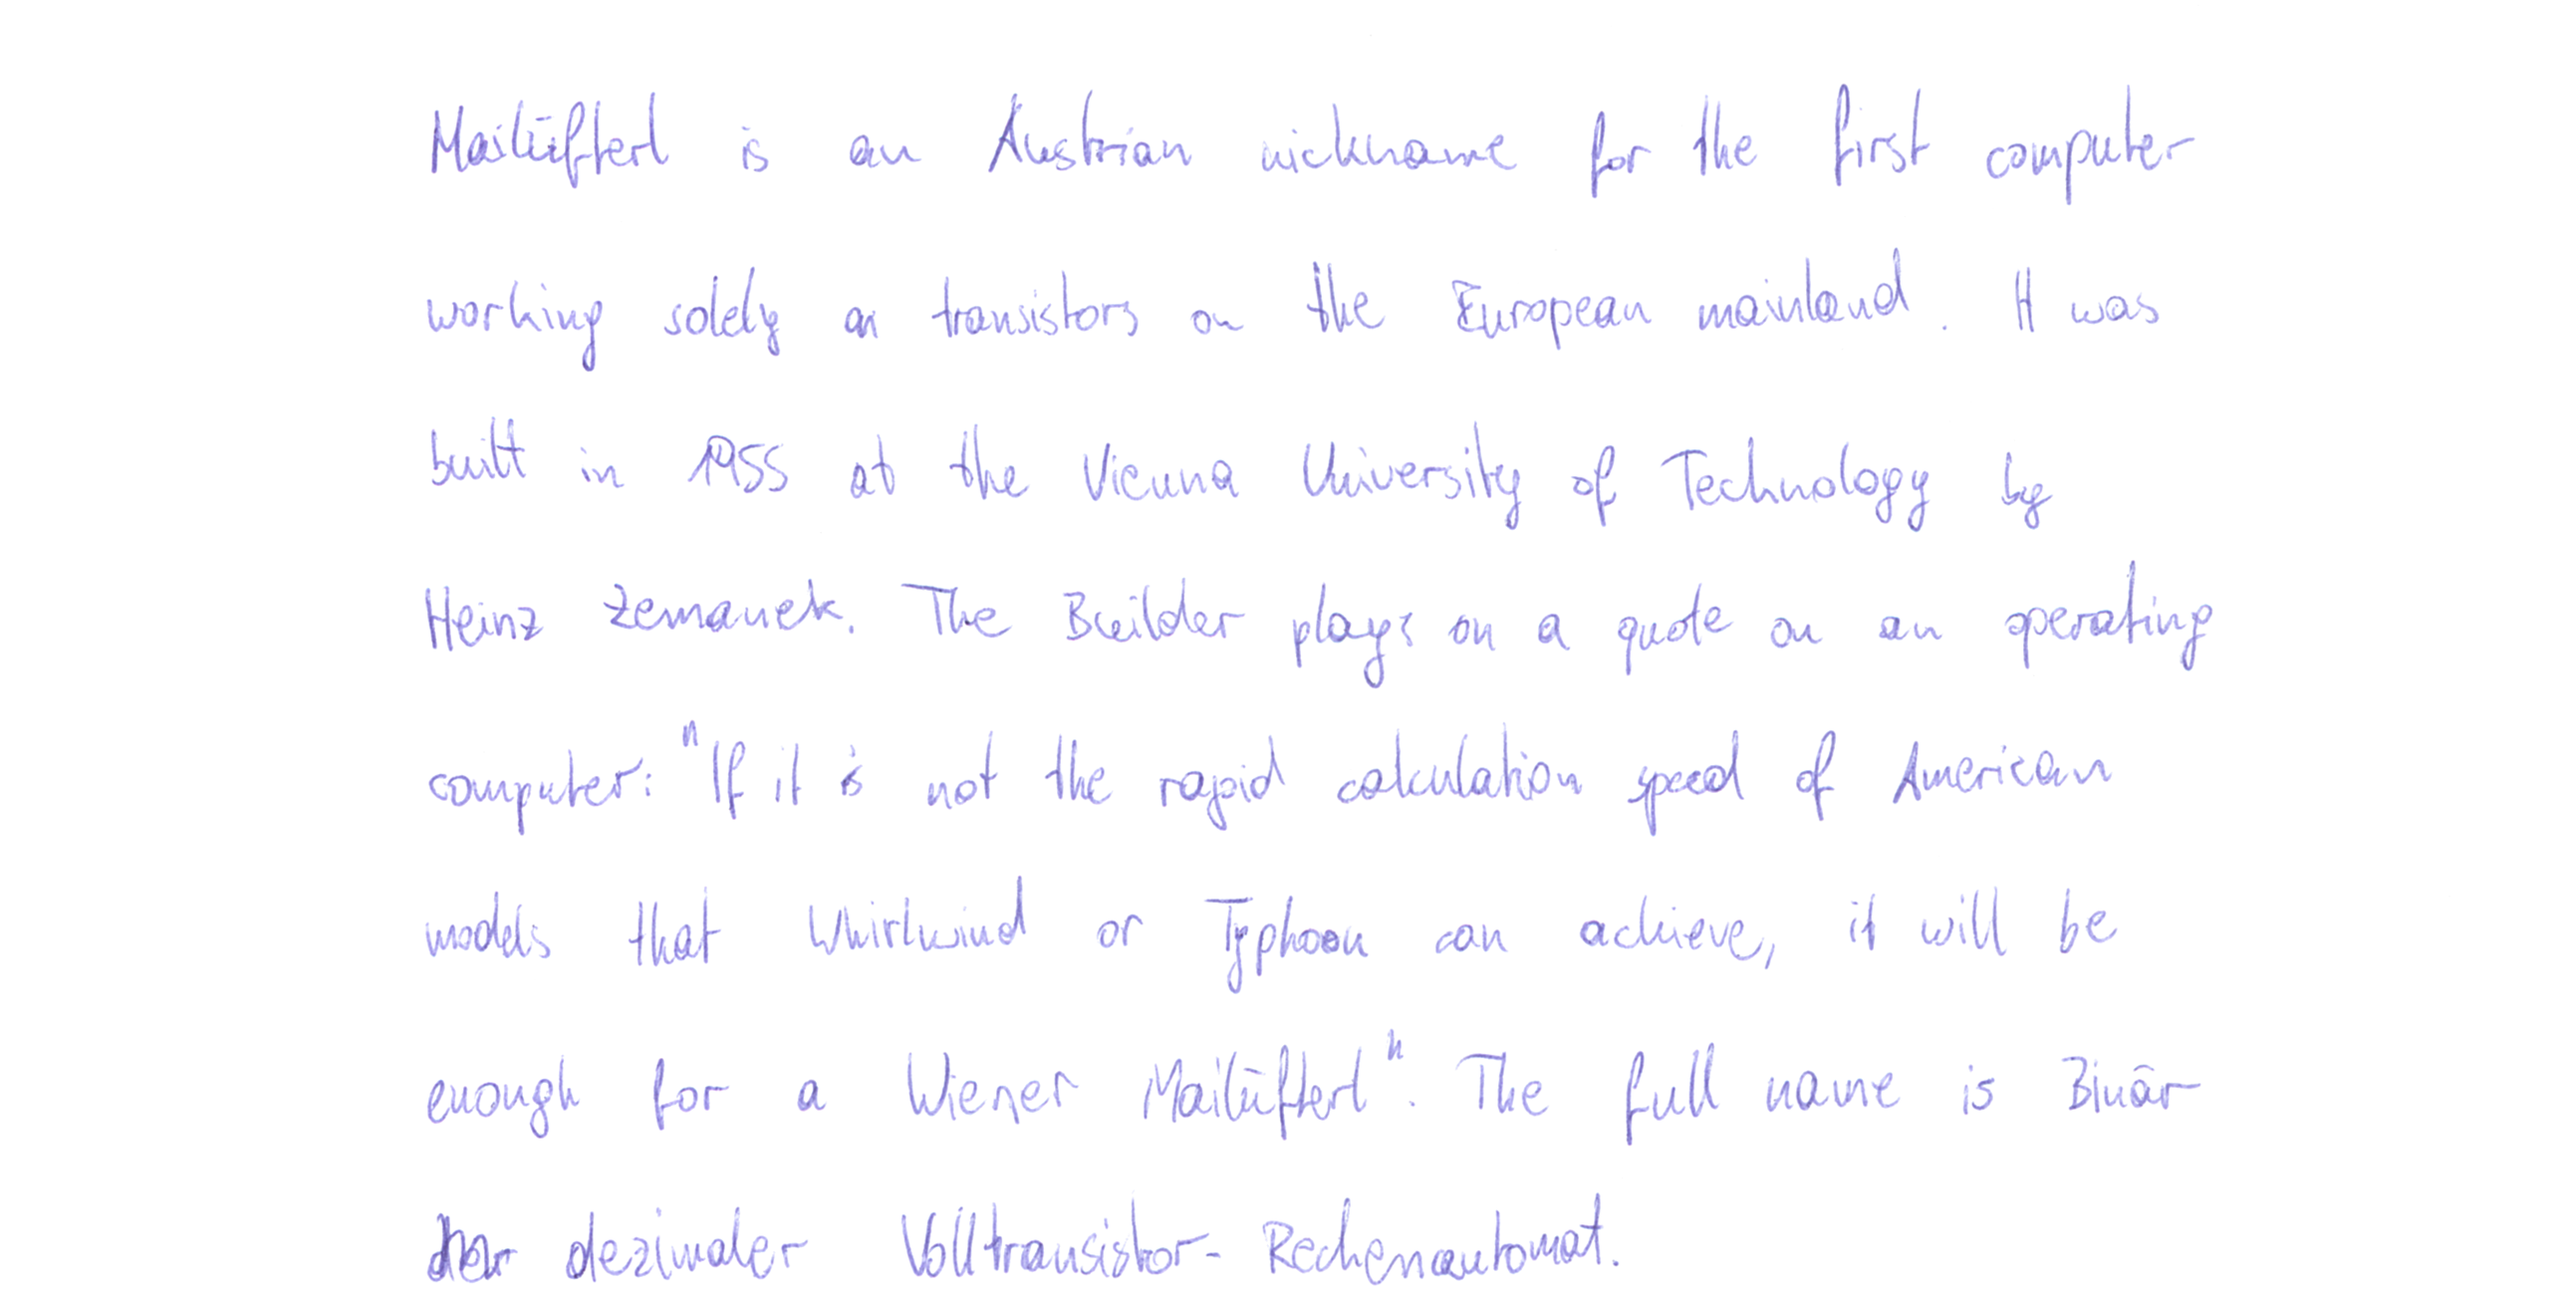 Mailüfterl is an Austrian nickname for the first computer
working solely on transistors on the European mainland. It was
built in 1955 at the Vienna University of Technology by
Heinz Zemanek. The Builder plays on a quote on an operating
computer: "If it is not the rapid calculation speed of American
models that Whirlwind or Typhoon can achieve, it will be
enough for a Wiener Mailüfterl". The full name is Binär
dezimaler Volltransistor-Rechenautomat.